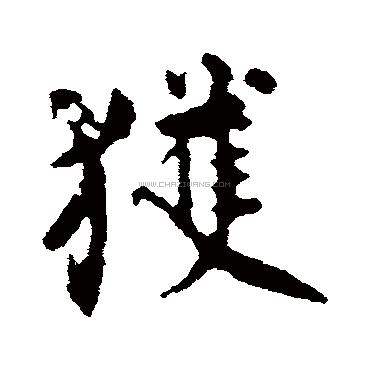 獲
WWW.CHAZIWANG.COM